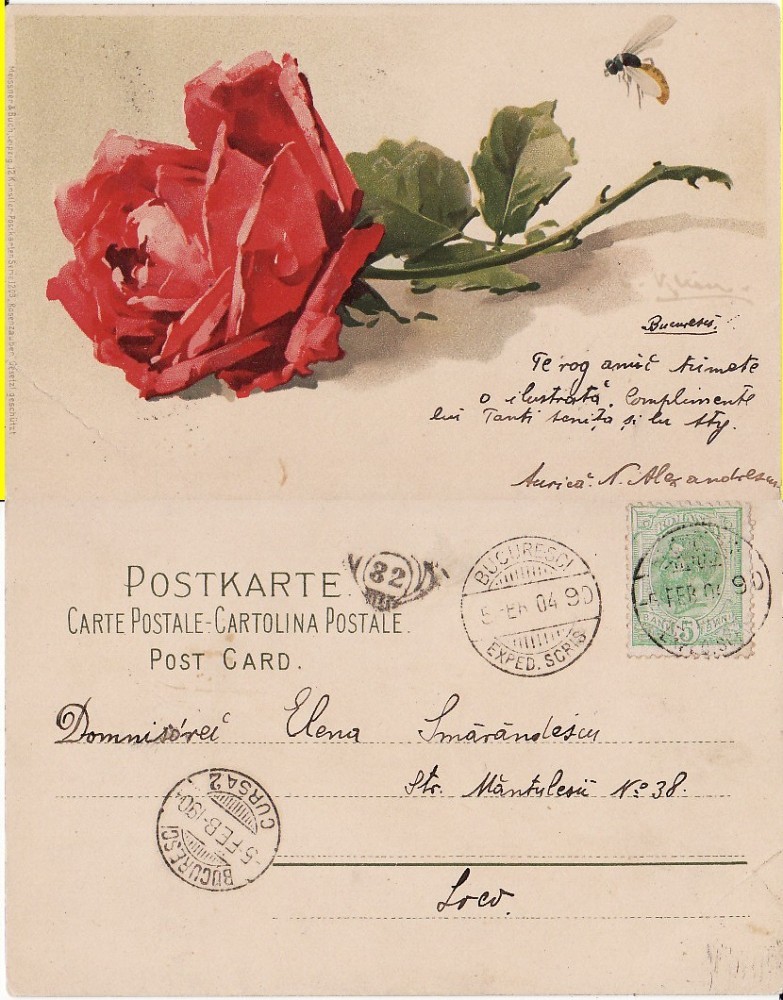 Meissner & Buch, Leipzig. 12 Künstler-Postkarten Serie 1220. "Rosenzauber" Gesetzl. geschützt.
Bucuresti.
Te rog amic trimete
o ilustrată. Complimente
lui Tanti Lenița și lu
Aurica N. Alexandrescu
POSTKARTE.
CARTE POSTALE-CARTOLINA POSTALE.
POST CARD.
32
BUCURESCI
5 FEB 04 9D
EXPED. SCRIS
ROMANIA
5 BANI 5
FEB 04 9D
Domnișórei Elena Smărăndescu
Str. Mântulesii No 38.
BUCURESCI
5-FEB-1904
CURSA 2
Loco.